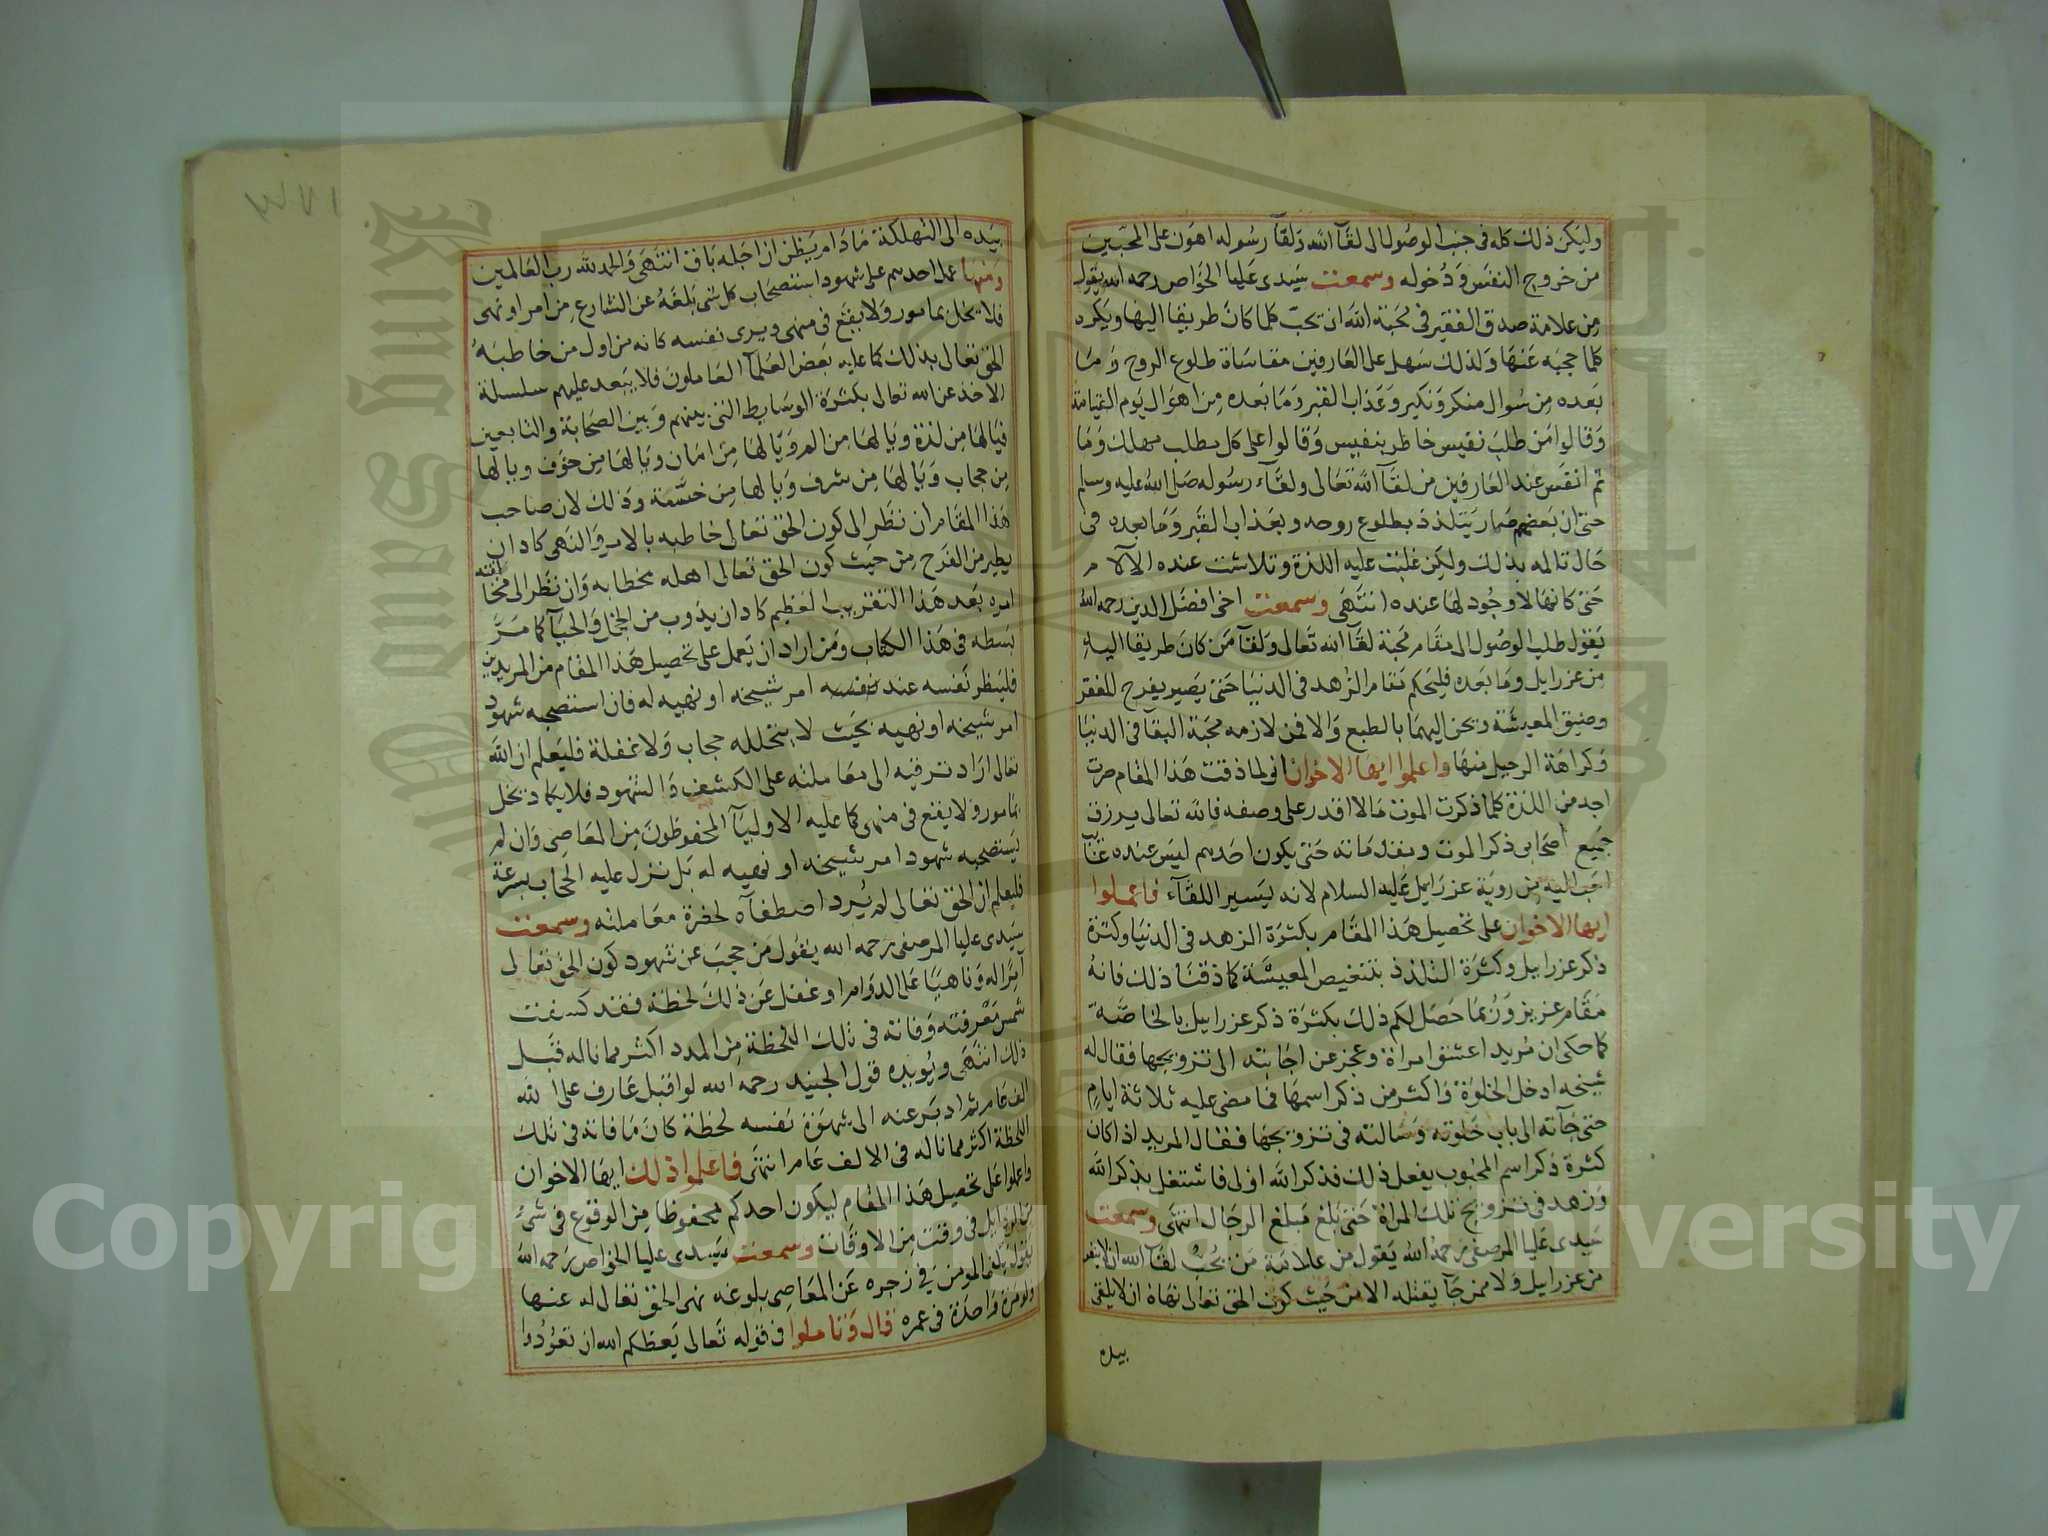 وليكن ذلك كله في جنب الوصول الى لقآ الله ولقآ رسوله اهون على المحبين
من خروج النفس ودخوله وسمعت سيدى عليا الخواص رحمه الله يقول
من علامة صدق الفقير في محبة الله ان تحب كلما كان طريقا اليها ويكره
كلما حجبه عنها ولذلك سهل على العارفين مقاساة طلوع الروح وما
بعده من سوال منكر ونكير وعذاب القبر وما بعده من اهوال يوم القيامة
وقالوا من طلب نفيس خاطر بنفيس وقالوا على كل مطلب مهلك وما
ثم انفس عند العارفين من لقآ الله تعالى ولقآء رسوله صلى الله عليه وسلم
حتى ان بعضهم صار يتلذذ بطلوع روحه وبعذاب القبر وما بعده في
حال تالمه بذلك ولكن غلبت عليه اللذة وتلاشت عنده الالام
حتى كانها لا وجود لها عنده انتهى وسمعت اخى افضل الدين رحمه الله
يقول طلب الوصول الى مقام محبة لقآ الله تعالى ولقآ من كان طريقا اليه
من عزرايل وما بعده فليحكم مقام الزهد في الدنيا حتى يصير يفرح للفقر
وضيق المعيشة ويحن اليهما بالطبع والا فمن لازمه محبة البقآ في الدنيا
وكراهة الرحيل منها واعلموا ايها الاخوان انى لما ذقت هذا المقام صرت
اجد من اللذة كلما ذكرت الموت مالا اقدر على وصفه فالله تعالى يرزق
جميع اصحابى ذكر الموت ومقدماته حتى يكون احدهم ليس عنده غائب
احب اليه من روية عزرايل عليه السلام لانه يسير اللقآء فاعملوا
ايها الاخوان على تحصيل هذا المقام بكثرة الزهد في الدنيا وكثرة
ذكر عزرايل وكثرة التلذذ بتنغيص المعيشة كما ذقنا ذلك فانه
مقام عزيز وربما حصل لكم ذلك بكثرة ذكر عزرايل بالخاصة
كما حكى ان مريدا عشق امراة وعجز عن اجابته الى تزويجها فقال له
شيخه ادخل الخلوة واكثر من ذكر اسمها فما مضى عليه ثلاثة ايام
حتى جآته الى باب خلوته وسالته في تزويجها فقال المريد اذا كان
كثرة ذكر اسم المحبوب يفعل ذلك فذكر الله اولى فاشتغل بذكر الله
وزهد في تزويج تلك المراة حتى بلغ مبلغ الرجال انتهى وسمعت
سيدى عليا المرصفى رحمه الله يقول من علامة من يحب لقآ الله ان لا ينفر
من عزرايل ولا ممن جآ يقتله الا من حيث كون الحق تعالى نهاه ان لا يلقى
بيده
بيده الى التهلكة ما دام يظن ان اجله باق انتهى والحمد لله رب العالمين
ومنها عمل احدهم على شهود استصحاب كل شى بلغه عن الشارع من امر او نهى
فلا يخل بمامور ولا يقع في منهى ويرى نفسه كانه من اول من خاطبه
الحق تعالى بذلك كما عليه بعض العلمآ العاملون فلا يبعد عليهم سلسلة
الاخذ عن الله تعالى بكثرة الوسايط التى بينهم وبين الصحابة والتابعين
فيالها من لذة ويالها من الم ويالها من امان ويالها من خوف ويالها
من حجاب ويالها من شرف ويالها من خسة وذلك لان صاحب
هذا المقام ان نظر الى كون الحق تعالى خاطبه بالامر والنهى كاد ان
يطير من الفرح من حيث كون الحق تعالى اهله بخطابه وان نظر الى مخالفته
امره بعد هذا التقريب العظيم كاد ان يذوب من الخجل والحيآ كما مر
بسطه في هذا الكتاب ومن اراد ان يعمل على تحصيل هذا المقام من المريدين
فلينظر نفسه عند نفسه امر شيخه او نهيه له فان استصحبه شهود
امر شيخه او نهيه بحيث لا يتخلله حجاب ولا غفلة فليعلم ان الله
تعالى اراد ترقيه الى معاملته على الكشف والشهود فلا يكاد يخل
بمامور ولا يقع في منهى كما عليه الاوليآ المحفوظون من المعاصى وان لم
يستصحبه شهود امر شيخه او نهيه له بل نزل عليه الحجاب بسرعة
فليعلم ان الحق تعالى لم يرد اصطفآه لحضرة معاملته وسمعت
سيدى عليا المرصفى رحمه الله يقول من حجب عن شهود كون الحق تعالى
آمرا له وناهيا على الدوام او غفل عن ذلك لحظة فقد كسفت
شمس معرفته وفاته في تلك اللحظة من المدد اكثر مما ناله قبل
ذلك انتهى ويويده قول الجنيد رحمه الله لو اقبل عارف على الله
الف عام ثم ادبر عنه الى شهوة نفسه لحظة كان ما فاته في تلك
اللحظة اكثر مما ناله في الالف عام انتهى فاعلموا ذلك ايها الاخوان
واعملوا على تحصيل هذا المقام ليكون احدكم محفوظا من الوقوع في شى
من الرذايل في وقت من الاوقات وسمعت سيدى عليا الخواص رحمه الله
يقول يكفى المومن في زجره عن المعاصى بلوغه نهى الحق تعالى له عنها
ولو مرة واحدة في عمره قال وتاملوا في قوله تعالى يعظكم الله ان تعودوا
Copyright © King Saud University